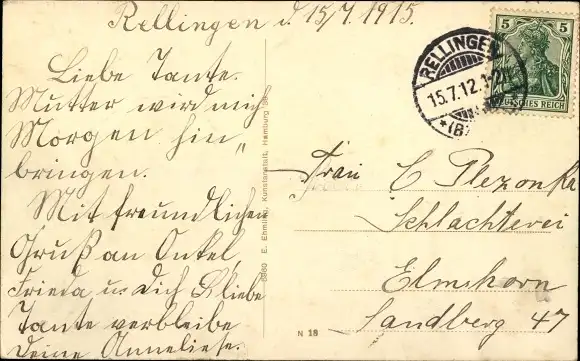 Rellingen d. 15/7. 1915.
Liebe Tante.
Mutter wird mich
Morgen hin„
bringen.
Mit freundlichen
Gruß an Onkel,
Frieda u. Dich liebe
Tante verbleibe
Deine Anneliese.
5 5
DEUTSCHES REICH
RELLINGEN
15.7.12.1-2N
*(B)
Frau C Plezonka
Schlachterei
Elmshorn
Sandberg 47
E. Ehmke, Kunstanstalt, Hamburg
N 18